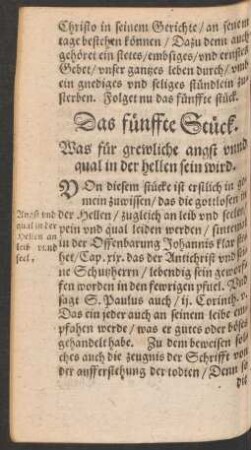 Christo in seinem Gerichte / an jenem
tage bestehen können / Dazu denn auch
gehöret ein stetes / embsiges / vnd ernstes
Gebet / vnser gantzes leben durch / vmb
ein gnediges vnd seliges stündlein zu
sterben. Folget nu das fünffte stück.
Das fünffte Stück.
Was für grewliche angst vnnd
qual in der hellen sein wird.
VOn diesem stücke ist erstlich in ge-
mein zuwissen / das die gottlosen in
der Hellen / zugleich an leib vnd seelen
pein vnd qual leiden werden / sintemal
in der Offenbarung Johannis klar ste-
het / Cap. xix. das der Antichrist vnd
seine Schutzherrn / lebendig sein geworf-
fen worden in den fewrigen pfuel. Vnd
sagt S. Paulus auch / ij. Corinth.
Das ein jeder auch an seinem leibe em-
pfahen werde / was er gutes oder böses
gehandelt habe. Zu dem beweisen sol-
ches auch die zeugnis der Schrifft von
der aufferstehung der todten / Denn so
die
Angst vnd
qual in der
Hellen an
leib vnnd
seel.